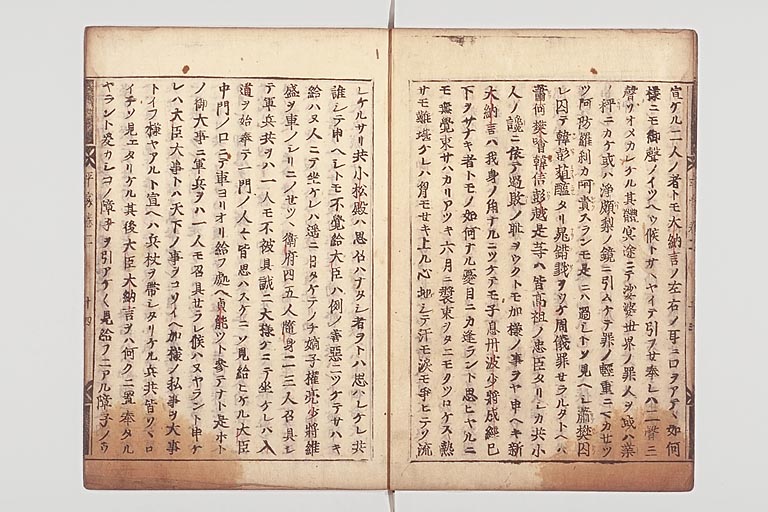 宣ケル二人ノ者トモ大納言ノ左右ノ耳ニ口ヲアテヽ如何
様ニモ御聲ノイツヘウ候トサヽヤイテ引フせ奉レハ二聲三
聲ソオメカレケル其體冥途ニテ娑婆世界ノ罪人ヲ或ハ業
ノ秤ニカケ或ハ浄頗梨ノ鏡ニ引ムケテ罪ノ輕重ニマカせツ
ツ阿防羅刹カ呵責スランモ是ニハ過シトソ見ヘシ蕭樊囚
レ囚テ韓彭葅醢タリ晁錯戮ヲウケ周儀罪せラルタトヘハ
蕭何樊噲韓信彭越是等ハ皆高祖ノ忠臣タリシカ共小
人ノ讒ニ依テ過敗ノ耻ヲウクトモ加様ノ事ヲヤ申ヘキ新
大納言ハ我身ノ角ナルニツケテモ子息丹波少將成經已
下ヲサナキ者トモノ如何ナル憂目ニカ逢ラント思ヒヤルニ
モ無覺束サハカリアツキ六月ニ裝束ヲタニモクツロケス熱
サモ難堪ケレハ胷モせキ上ル心地シテ汗モ涙モ爭ヒテソ流
レケルサリ共小松殿ハ思召ハナタシ者ヲトハ思ハレケレ共
誰シテ申ヘシトモ不覺給大臣ハ例ノ善惡ニツケテサハキ
給ハヌ人ニテ坐ケレハ遥ニ日タケテノチ嫡子權亮少將維
盛ヲ車ノシリニノせツヽ衛府四五人隨身二三人召具シ
テ軍兵共ヲハ一人モ不被具誠ニ大様ケニテ坐ケレハ入
道ヲ始奉テ一門ノ人々皆思ハスケニソ見給ヒケル大臣
中門ノ口ニテ車ヨリオリ給フ處ヘ貞能ツト參テナト是ホト
ノ御大事ニ軍兵ヲハ一人モ召具せラレ候ハヌヤラント申ケ
レハ大臣大事トハ天下ノ事ヲコソイヘ加様ノ私事ヲ大事
トイフ様ヤアルト宣ヘハ兵杖ヲ帶シタリケル兵共皆ソヽロ
イテソ見エタリケル其後大臣大納言ヲハ何クニ置奉タル
ヤラント爰カシコノ障子ヲ引アケヽヽ見給フニアル障子ノウ